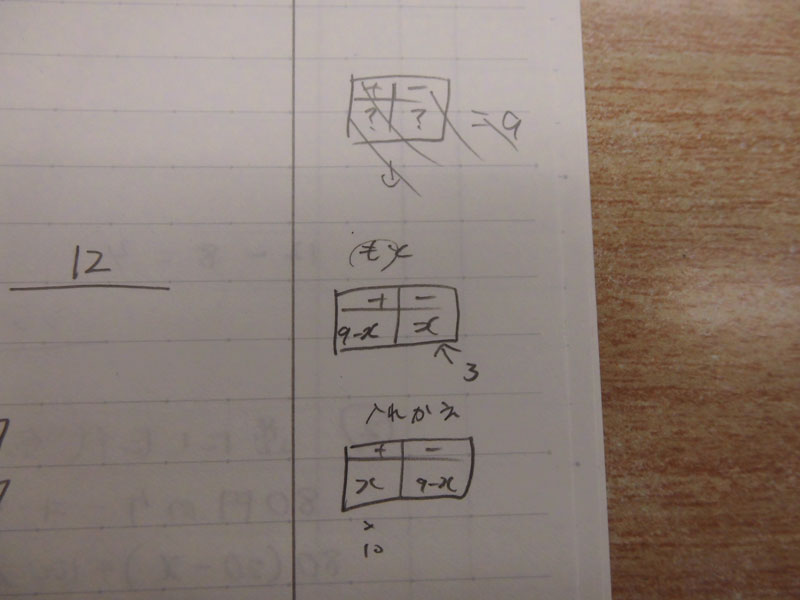 + -
? ? = 9
12
(モ)x
+ -
9-x x
3
入れかえ
+ -
x 9-x
10